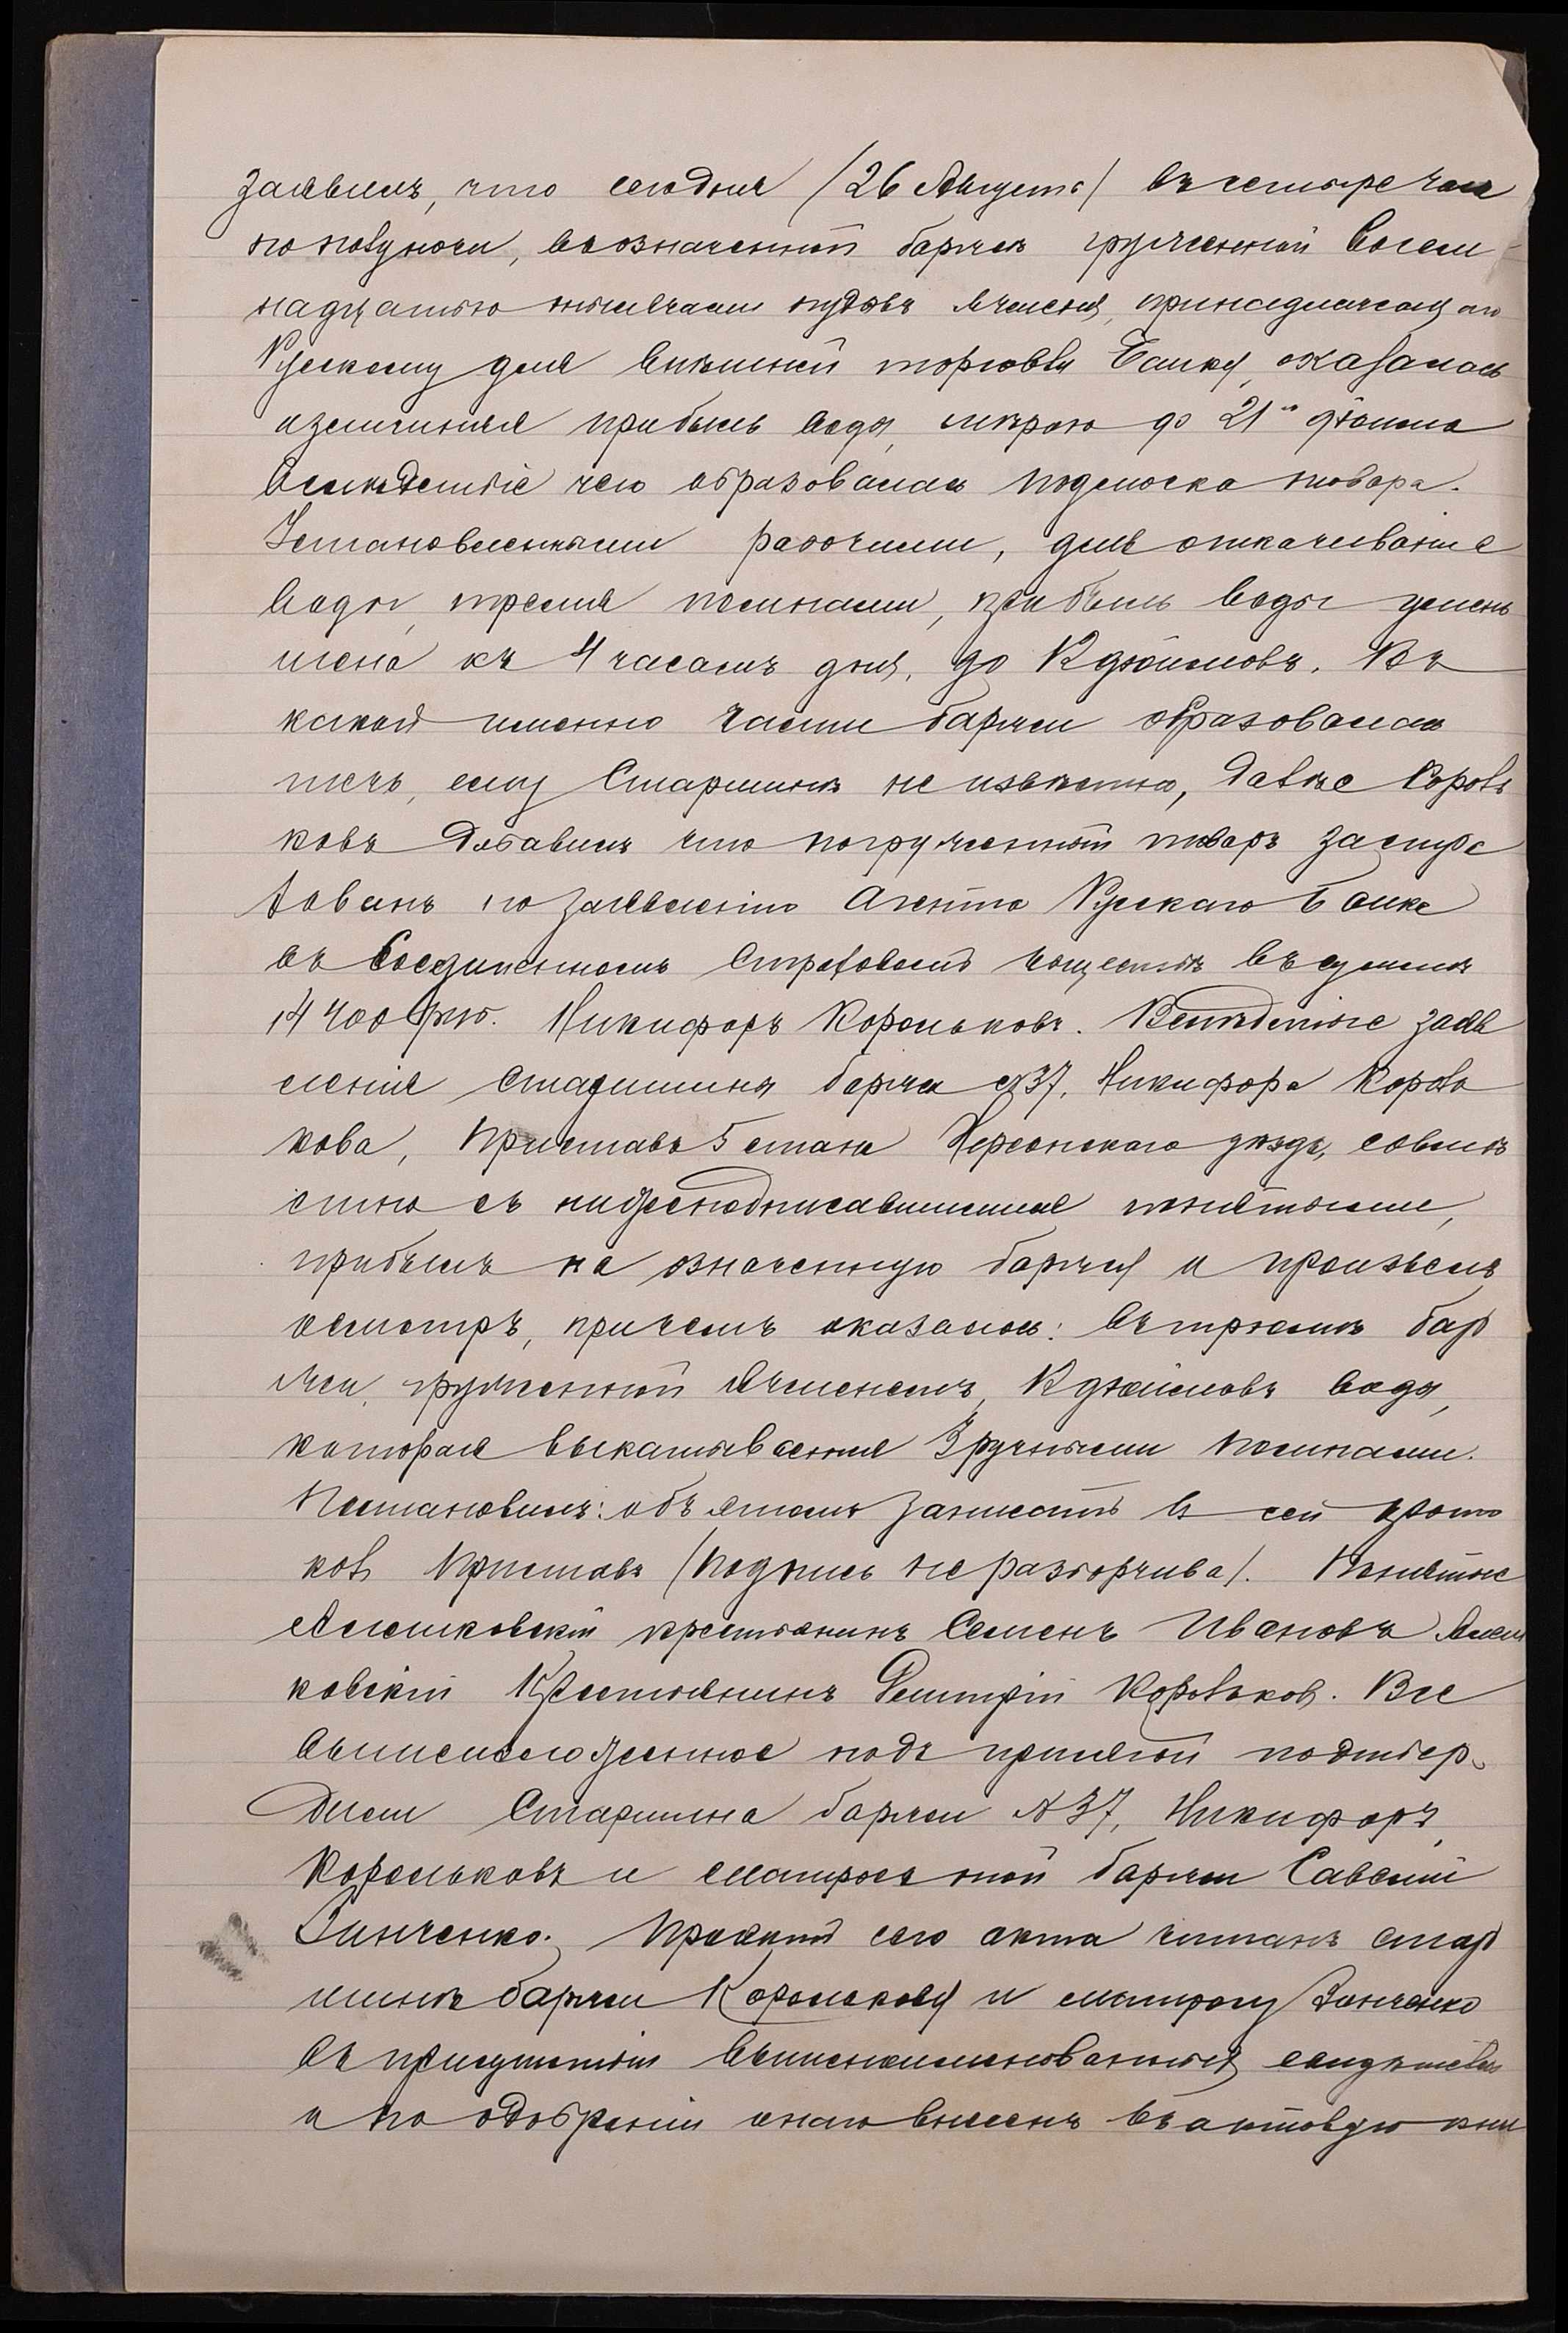 заявилъ, что сегодня (26 Августа) въ четыре часа
по полуночи, въ означенной баржѣ груженной восем-
надцатью тысячами пудовъ ячменя, принадлежащаго
Русскому для внѣшней торговли Банку, оказалась
излишняя прибыль воды, мѣрою до 21го дюйма
вслѣдствіе чего образовалась подмочка товара.
Установленными рабочими, для откачиванія
воды, тремя помпами, прибыль воды умень
шена къ 4 часамъ дня, до 12 дюймовъ. Въ
какой именно части баржи образовалась
течь, ему Старшинѣ не извѣстно, далѣе Король
ковъ добавилъ что погруженный товаръ застра
хованъ по заявленію Агента Русскаго Банка
въ Соединенномъ Страховомъ Обществѣ въ суммѣ
14400 руб. Никифоръ Корольковъ. Вслѣдствіе заяв
ленія старшины баржи №37, Никифора Король
кова, Приставъ 5 стана Херсонскаго уѣзда, совмѣ
стно съ нижеподписавшимися понятыми,
прибылъ на означенную баржу и произвелъ
осмотръ, причемъ оказалось: въ трюмѣ бар
жи, груженной ячменемъ, 12 дюймовъ воды,
которая выкачивается 3 ручными помпами.
Постановилъ: объ этомъ записать въ сей прото
колъ Приставъ (подпись не разборчива). Понятые
Алешковскій крестьянинъ Семенъ Ивановъ Алеш
ковскій Крестьянинъ Дмитрій Корольков. Все
вышеизложенное подъ присягой подтвер-
дили Старшина баржи №37, Никифоръ
Корольковъ и матросъ той баржи Савелий
Зинченко. Проектъ сего акта читанъ стар
шинѣ баржи Королькову и матросу Зинченко
въ присутствіи вышепоименованныхъ свидѣтелей
и по одобреніи онаго внесенъ въ актовую кни